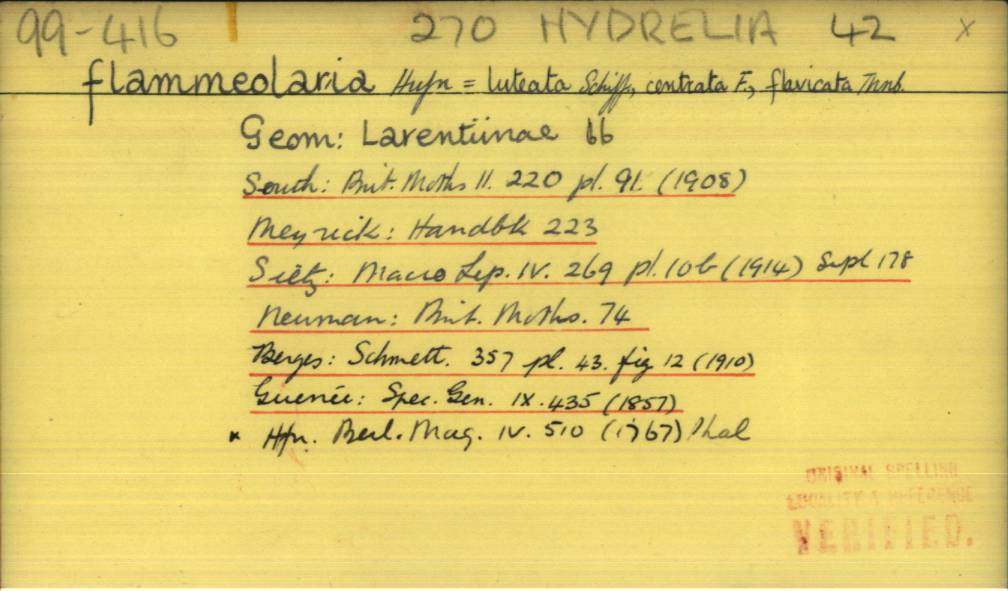 99-416 270 HYDRELIA 42 x
flammeolaria Hufn = luteata Schiff., centrata F., flavicata Thnb.
Geom: Larentiinae 66
South: Brit. Moths II. 220 pl. 91. (1908)
Meyrick: Handbk 223
Sietz: Macro Lep. IV. 269 pl. 10b (1914) Supl 178
Neuman: Brit. Moths. 74
Berges: Schmett. 357 pl. 43. fig 12 (1910)
Guenée: Spec. Gen. IX. 435 (1857)
* Hfn. Berl. Mag. IV. 510 (1767) Phal
ORIGINAL SPELLING
LOCALITY & REFERENCE
VERIFIED.